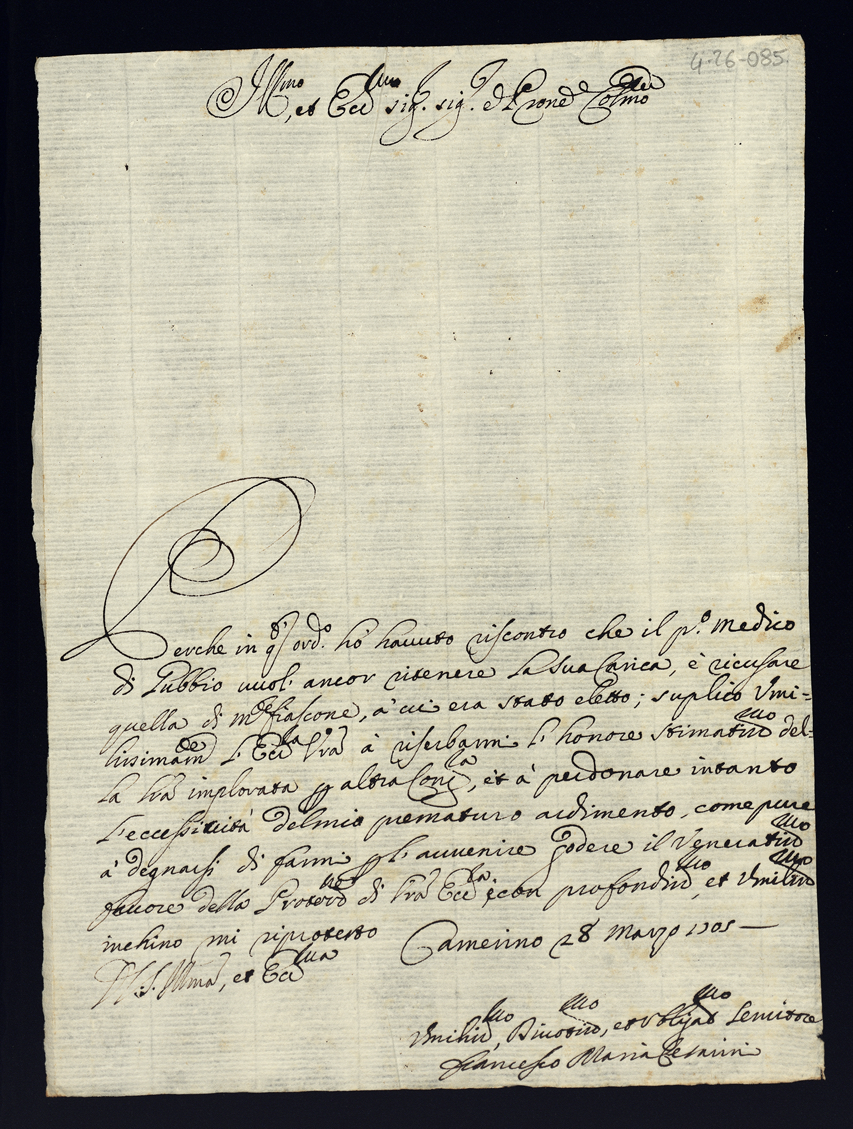 4-26-085
Ill.mo, et Ecc.mo Sig.r Sig.r e P.rone Col.mo
Perche in q.sto ord.o hò hauuto riscontro che il p.o Medico
di Gubbio vuol ancor ritenere la sua Carica, è ricusare
quella di M.tefiascone, à cui era stato eletto; suplico Vmi-
lissimam.te l'Ecc.za V'ra à riserbarmi l'honore stimatiss.mo del-
la V'ra implorata p altra Cong.a, et à perdonare intanto
l'eccessiuità del mio prematuro ardimento, come pure
à degnarsi di farmi p l'auuenire godere il Veneratiss.mo
fauore della Protez.ne di V'ra Ecc.za, è con profondiss.mo, et Vmiliss.mo
inchino mi riprotesto
Camerino 28 Marzo 1705
D. V. S. Ill.ma, et Ecc.ma
Vmiliss.mo, Diuotiss.mo, et Obligat.mo Seruitore
Francesco Maria Cesarini